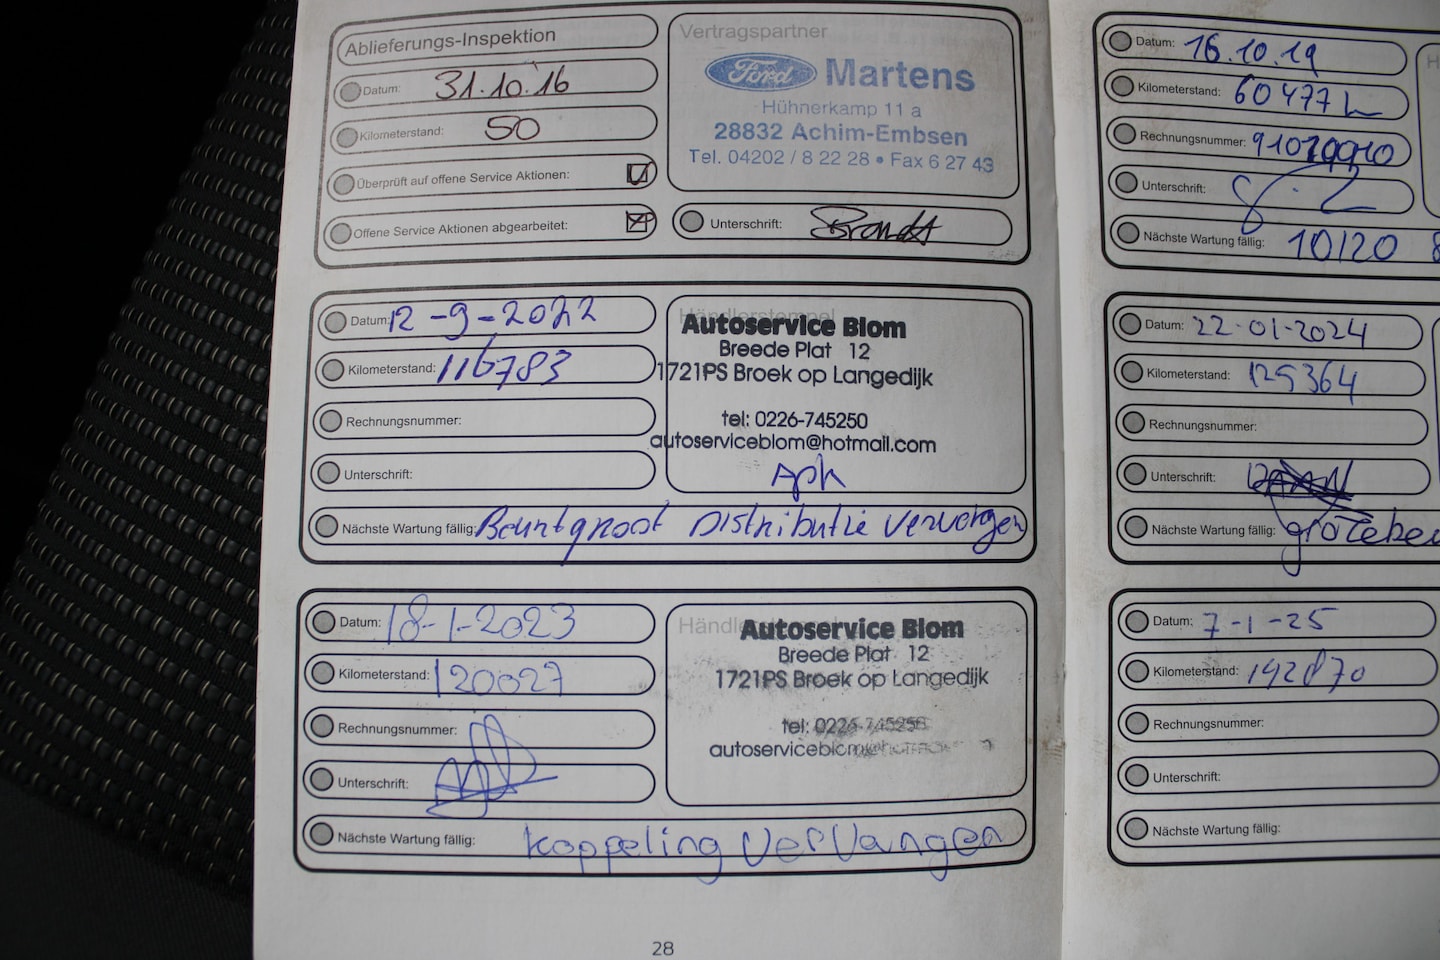 Ablieferungs-Inspektion
Datum: 31.10.16
Kilometerstand: 50
Überprüft auf offene Service Aktionen:
Offene Service Aktionen abgearbeitet:
Vertragspartner
Ford Martens
Hühnerkamp 11 a
28832 Achim-Embsen
Tel. 04202 / 8 22 28 • Fax 6 27 43
Unterschrift: Brandt
Datum: 12-9-2022
Kilometerstand: 116783
Rechnungsnummer:
Unterschrift:
Händlerstempel
Autoservice Blom
Breede Plat 12
1721PS Broek op Langedijk
tel: 0226-745250
autoserviceblom@hotmail.com
Nächste Wartung fällig: Beurt groot Distributie vervangen
Datum: 18-1-2023
Kilometerstand: 120027
Rechnungsnummer:
Unterschrift:
Autoservice Blom
Breede Plat 12
1721PS Broek op Langedijk
tel: 0226-745250
Nächste Wartung fällig: koppeling vervangen
28
Datum: 16.10.19
Kilometerstand: 60477
Rechnungsnummer:
Unterschrift:
Nächste Wartung fällig: 10/20
Datum: 22-01-2024
Kilometerstand: 125364
Rechnungsnummer:
Unterschrift:
Nächste Wartung fällig:
Datum: 7-1-25
Kilometerstand: 142870
Rechnungsnummer:
Unterschrift:
Nächste Wartung fällig: